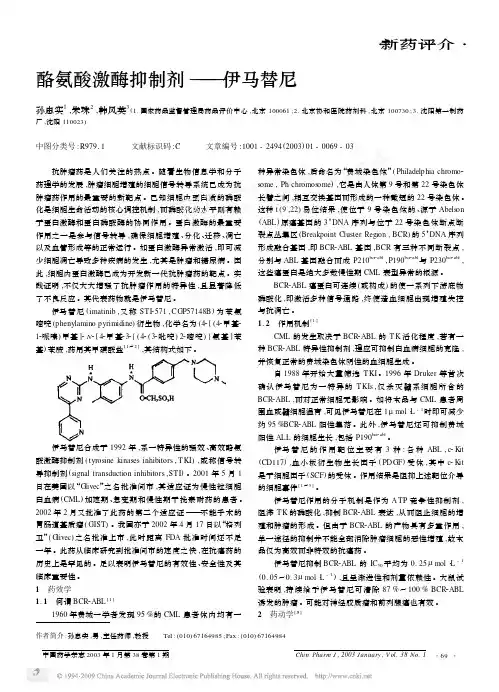 新药评介·
酪氨酸激酶抑制剂——伊马替尼
孙忠实1,朱珠2,韩凤英3(1.国家药品监督管理局药品评价中心,北京 100061;2.北京协和医院药剂科,北京 100730;3.沈阳第一制药
厂,沈阳 110023)
中图分类号:R979.1 文献标识码:C 文章编号:1001-2494(2003)01-0069-03
抗肿瘤药是人们关注的热点。随着生物信息学和分子
药理学的发展,肿瘤细胞增殖的细胞信号转导系统已成为抗
肿瘤药作用的最重要的新靶点。已知细胞内蛋白质的磷酸
化是细胞生命活动的核心调控机制,而磷酸化的水平则有赖
于蛋白激酶和蛋白磷酸酶的协同作用。蛋白激酶的最重要
作用之一是参与信号转导,确保细胞增殖、分化、迁移、凋亡
以及血管形成等的正常运行。如蛋白激酶异常激活,即可减
少细胞凋亡导致多种疾病的发生,尤其是肿瘤和糖尿病。因
此,细胞内蛋白激酶已成为开发新一代抗肿瘤药的靶点。实
践证明,不仅大大增强了抗肿瘤作用的特异性,且显著降低
了不良反应。其代表药物就是伊马替尼。
伊马替尼(imatinib,又称 STI-571,CGP57148B)为苯氨
嘧啶(phenylamino pyrimidine)衍生物,化学名为(4-[(4-甲基-
1-哌嗪)甲基]-N-[4-甲基-3-[(4-(3-吡啶)-2-嘧啶)]氨基]苯
基)苯胺,药用其甲磺酸盐[1~2],其结构式如下。
H H N N N O N N N CH3SO3H
伊马替尼合成于 1992 年,系一特异性的强效、高效酪氨
酸激酶抑制剂(tyrosine kinases inhibitors,TKI),或称信号转
导抑制剂(signal transduction inhibitors,STI)。2001 年 5 月 1
日在美国以“Glivec”之名批准问市,其适应证为慢性粒细胞
白血病(CML)加速期、急变期和慢性期干扰素耐药的患者。
2002 年 2 月又批准了此药的第二个适应证——不能手术的
胃肠道基质瘤(GIST)。我国亦于 2002 年 4 月 17 日以“格列
卫”(Glivec)之名批准上市,此时距离 FDA 批准时间还不足
一年。此药从临床研究到批准问市的速度之快,在抗癌药的
历史上是罕见的。足以表明伊马替尼的有效性、安全性及其
临床重要性。
1 药效学
1.1 何谓 BCR-ABL[1]
1960 年费城一学者发现 95 %的 CML 患者体内均有一
种异常染色体,后命名为“费城染色体”(Philadelphia chromo-
some,Ph chromosome),它是由人体第 9 号和第 22 号染色体
长臂之间,相互交换基因而形成的一种截短的 22 号染色体。
这种 t(9,22)易位结果,使位于 9 号染色体的、源于 Abelson
(ABL)原癌基因的 3′DNA 序列与位于 22 号染色体断点断
裂点丛集区(Breakpoint Cluster Region,BCR)的 5′DNA 序列
形成融合基因,即 BCR-ABL 基因,BCR 有三种不同断裂点,
分别与 ABL 基因融合而成 P210bcr-abl、P190bcr-abl与 P230bcr-abl。
这些癌蛋白是绝大多数慢性期 CML 表型异常的根源。
BCR-ABL 癌蛋白可连续(或构成)的使一系列下游底物
磷酸化,即激活多种信号通路,终使造血细胞出现增殖失控
与抗凋亡。
1.2 作用机制[1]
CML 的发生取决于 BCR-ABL 的 TK 活化程度,若有一
种 BCR-ABL 特异性抑制剂,理应可抑制白血病细胞的克隆,
并恢复正常的费城染色体阴性的血细胞生成。
自 1988 年开始大量筛选 TKI。1996 年 Druker 等首次
确认伊马替尼为一特异的 TKIs,仅杀灭髓系细胞所含的
BCR-ABL,而对正常细胞无影响。如将末品与 CML 患者周
围血或髓细胞温育,可见伊马替尼在 1μ mol·L-1时即可减少
约 95 %BCR-ABL 阳性集落。此外,伊马替尼还可抑制费城
阳性 ALL 的细胞生长,包括 P190bcr-abl。
伊马替尼的作用靶位主要有 3 种:各种 ABL,c-Kit
(CD117),血小板衍生物生长因子(PDGF)受体,其中 c-Kit
是干细胞因子(SCF)的受体。作用结果是阻抑上述靶位介导
的细胞事件[1~3]。
伊马替尼作用的分子机制是作为 ATP 竞争性抑制剂,
阻滞 TK 的磷酸化,抑制 BCR-ABL 表达,从而阻止细胞的增
殖和肿瘤的形成。但由于 BCR-ABL 的产物具有多重作用,
单一途径的抑制并不能全面消除肿瘤细胞的恶性增殖,故末
品仅为高效而非特效的抗癌药。
伊马替尼抑制 BCR-ABL 的 IC50平均为 0.25μ mol·L-1
(0.05~0.3μ mol·L-1),且呈渐进性和剂量依赖性。大鼠试
验表明,持续给予伊马替尼可清除 87 %~100 % BCR-ABL
诱发的肿瘤。可能对神经胶质瘤和前列腺癌也有效。
2 药动学[3]
作者简介:孙忠实,男,主任药师,教授 Tel:(010)67164985;Fax:(010)67164984
中国药学杂志 2003 年 1 月第 38 卷第 1 期 Chin Pharm J,2003 January,Vol.38 No.1 ·69·
© 1994-2009 China Academic Journal Electronic Publishing House. All rights reserved. http://www.cnki.net